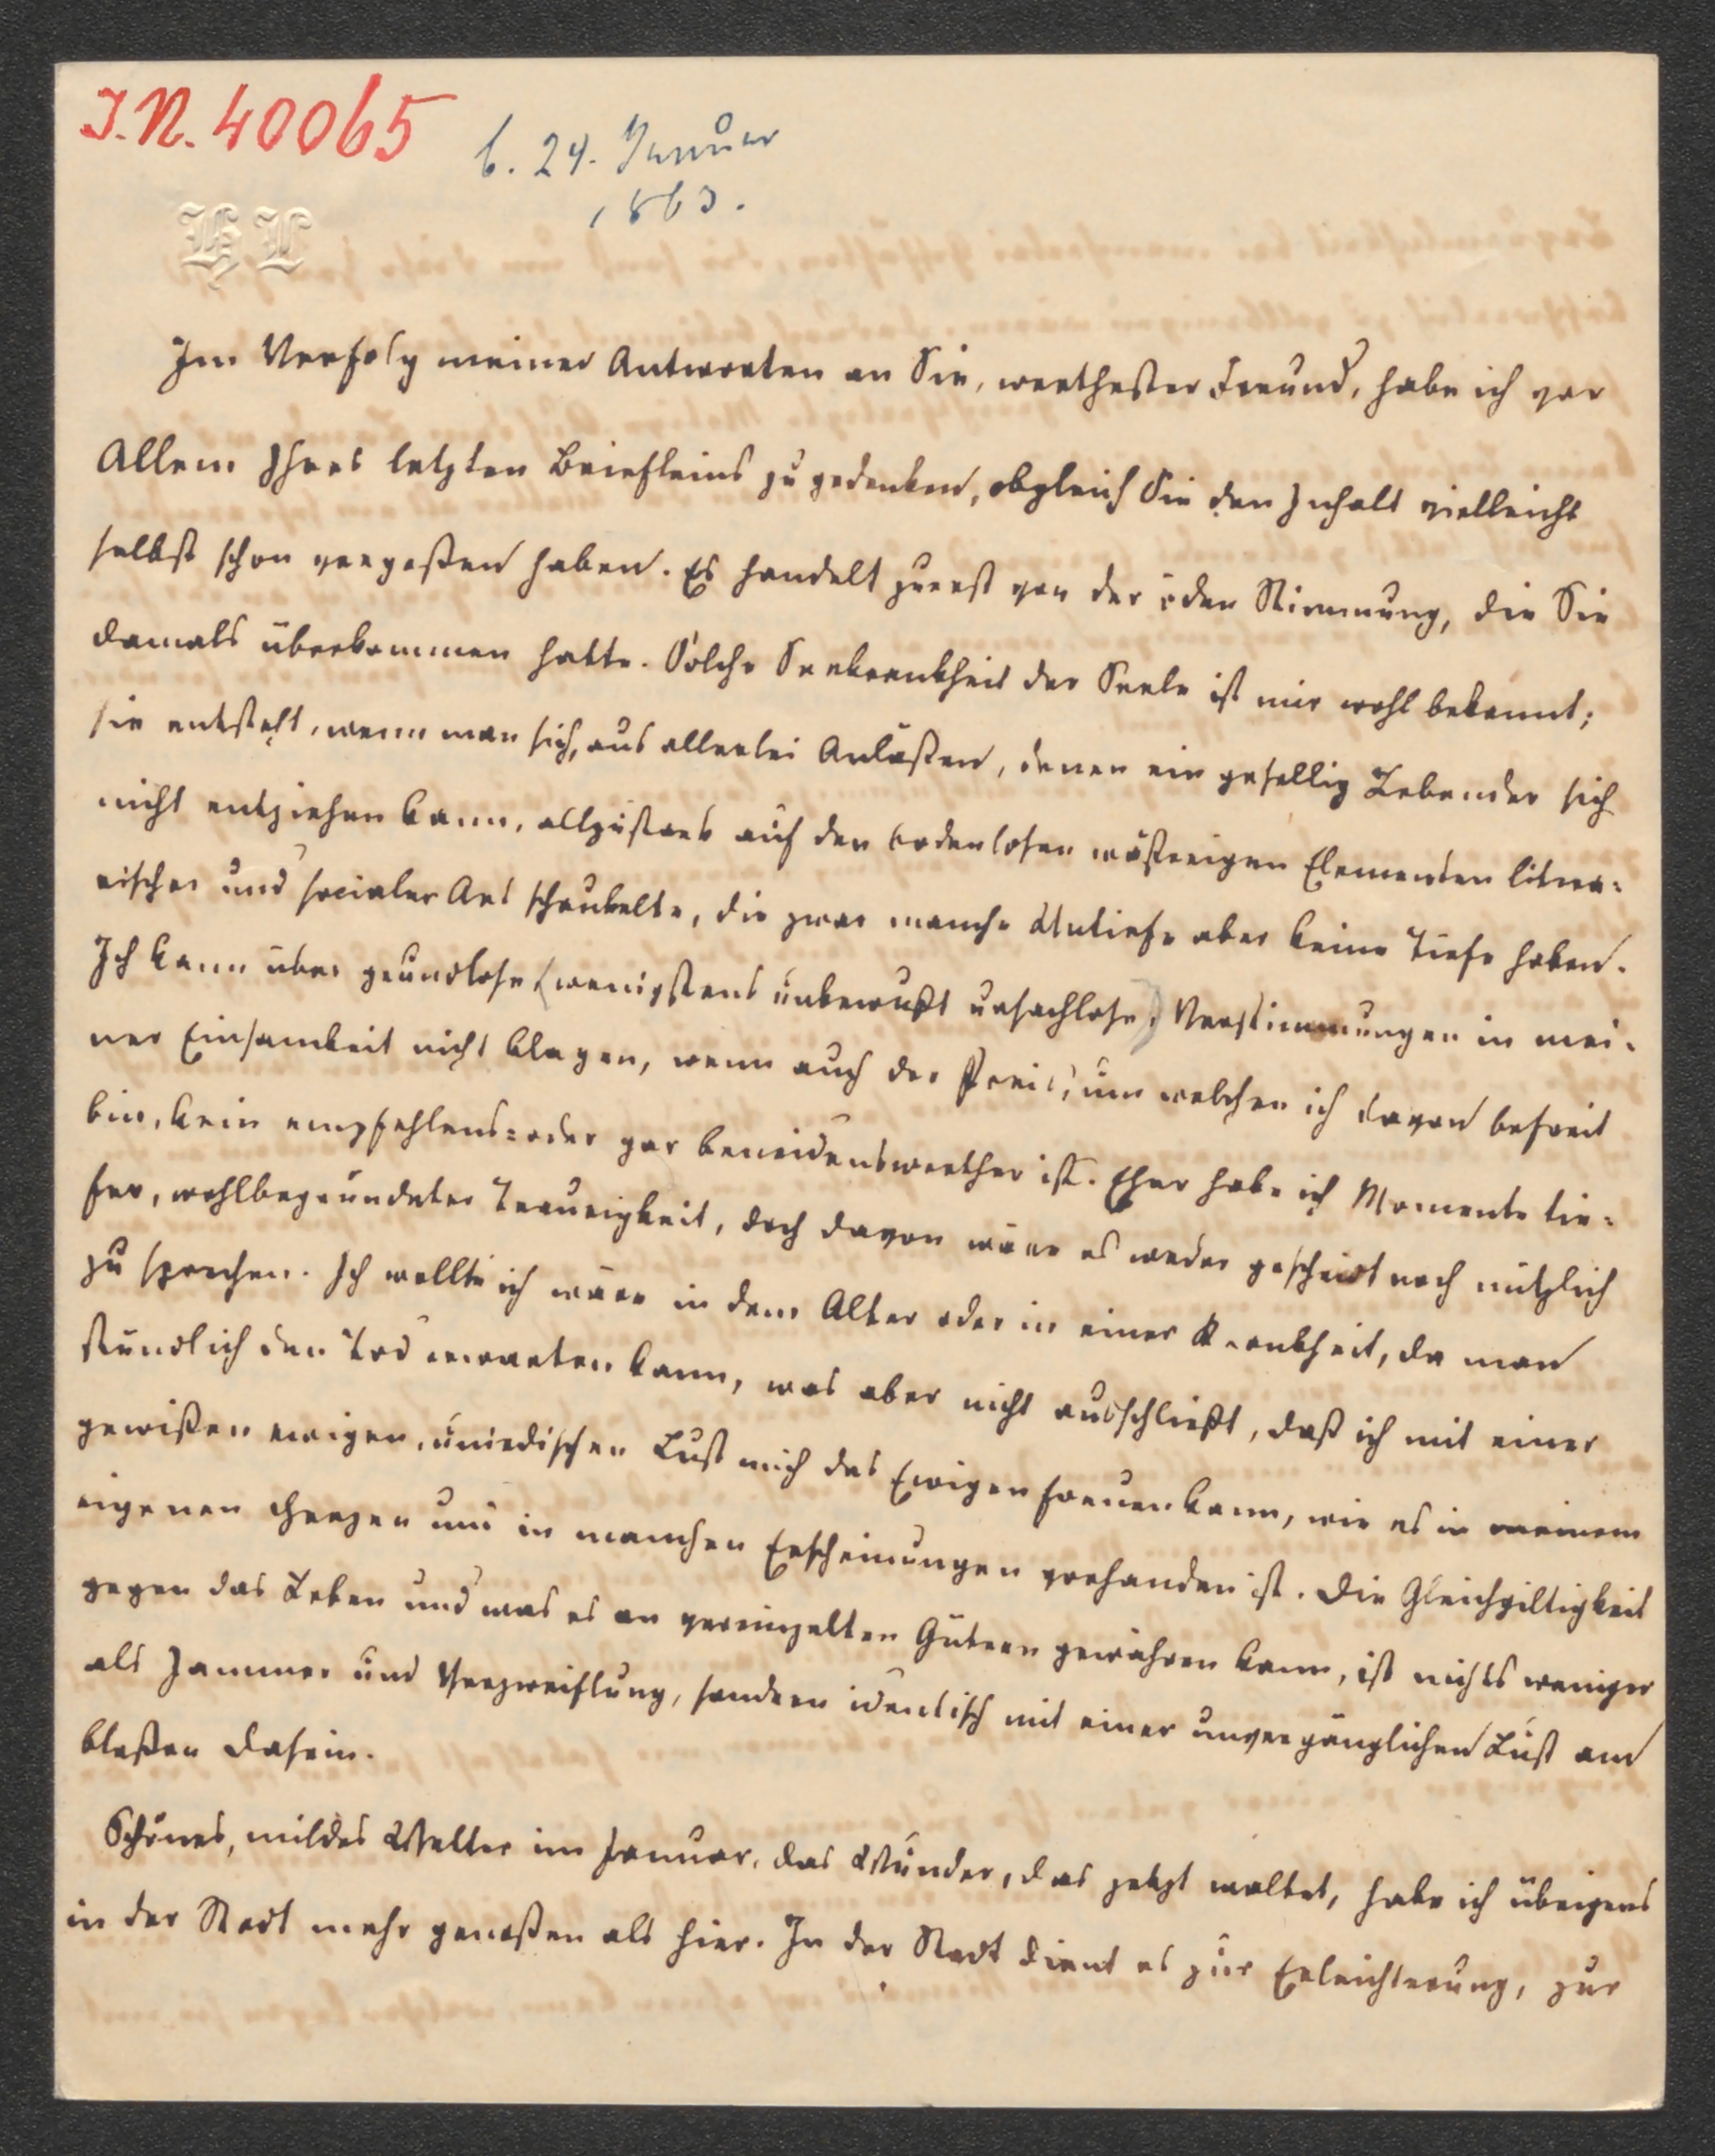 I.N. 40065
b. 24. Januar
1863.
HL
Im Verfolg meiner Antworten an Sie, werthester Freund, habe ich vor
Allem Ihres letzten Briefleins zu gedenken, obgleich Sie den Inhalt vielleicht
selbst schon vergeßen haben. Es handelt zuerst von der öden Stimmung, die Sie
damals überkommen hatte. Solche Seekrankheit der Seele ist mir wohl bekannt;
sie entsteht, wenn man sich, aus allerlei Anläßen, denen ein gesellig Lebender sich
nicht entziehen kann, allzustark auf den bodenlosen wäßerigen Elementen litera-
rischer und socialer Art schaukelte, die zwar manche Untiefe aber keine Tiefe haben.
Ich kann über grundlose (wenigstens unbewußt ursachlose) Verstimmungen in mei-
ner Einsamkeit nicht klagen, wenn auch der Preis, um welchen ich davon befreit
bin, kein empfehlens- oder gar beneidenswerther ist. Eher habe ich Momente tie-
fer, wohlbegründeter Traurigkeit, doch davon wäre es weder gescheidt noch nützlich
zu sprechen. Ich wollte ich wäre in dem Alter oder in einer Krankheit, da man
stündlich den Tod erwarten kann, was aber nicht ausschließt, daß ich mit einer
gewißen ewigen, unirdischen Lust mich des Ewigen freuen kann, wie es in meinem
eigenen Herzen und in manchen Erscheinungen vorhanden ist. Die Gleichgiltigkeit
gegen das Leben und was es an vereinzelten Gütern gewähren kann, ist nichts weniger
als Jammer und Verzweiflung, sondern identisch mit einer unvergänglichen Lust am
bloßen Dasein.
Schönes, mildes Wetter im Januar, das Wunder, das jetzt waltet, habe ich übrigens
in der Stadt mehr genoßen als hier. In der Stadt dient es zur Erleichterung, zur